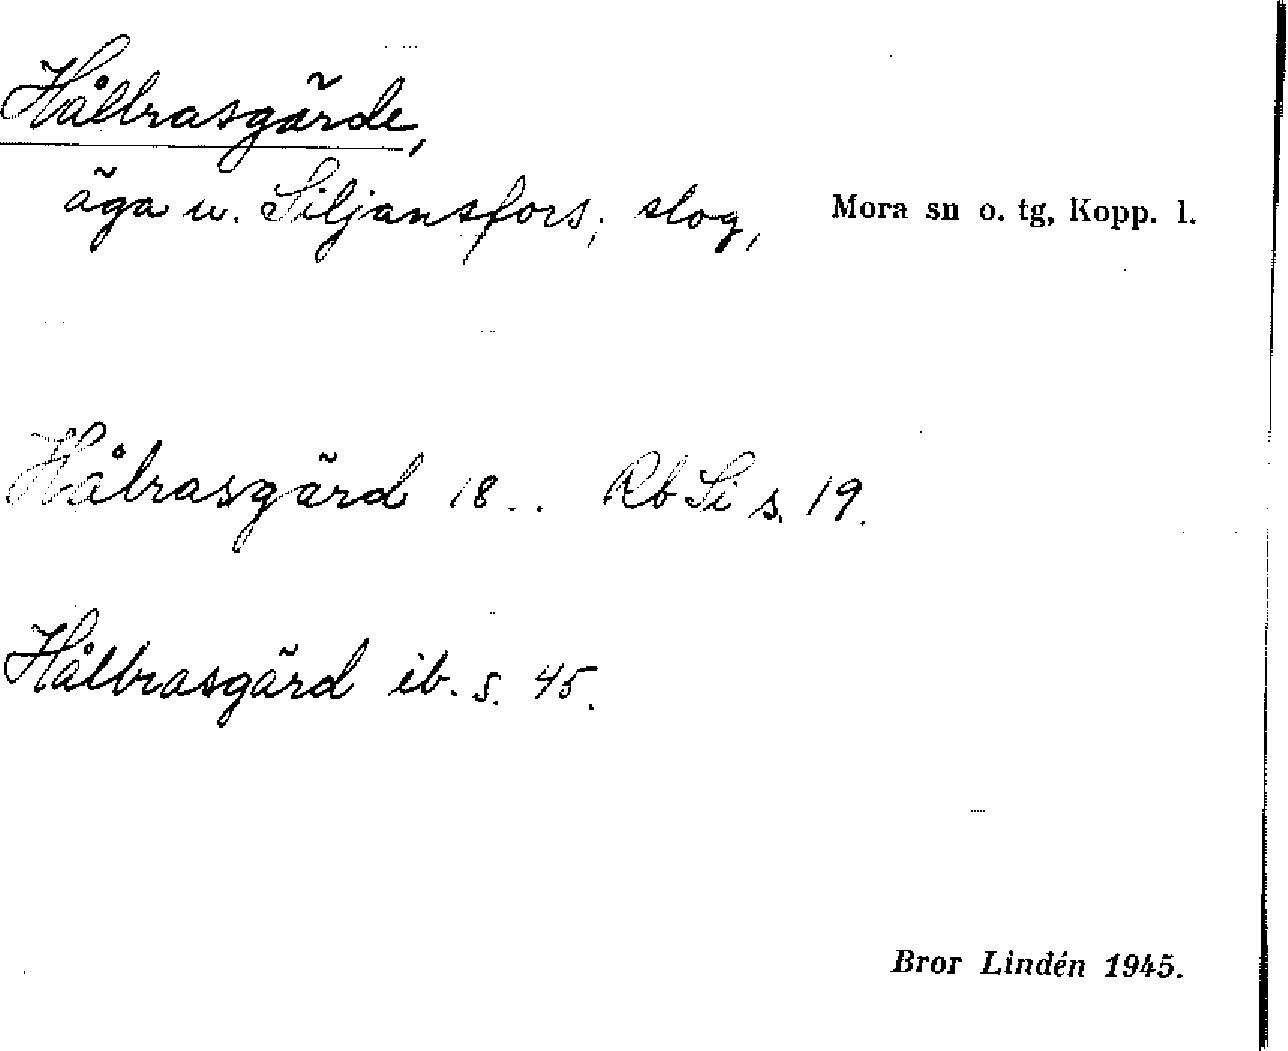 Hålbrasgärde,
äga u. Siljansfors; slog, Mora sn o. tg, Kopp. l.
Hålrasgärd 18.. Rb Si s. 19.
Hålbrasgärd ib. s. 45.
Bror Lindén 1945.